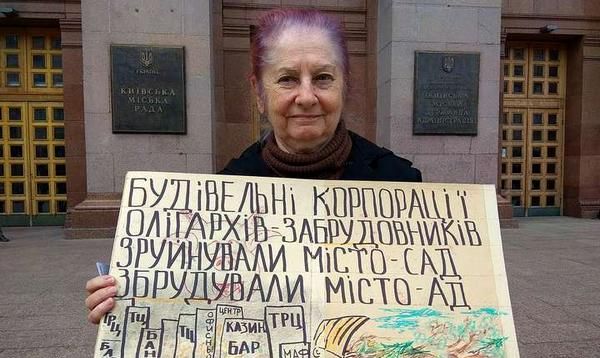 УКРАЇНА
КИЇВСЬКА
МІСЬКА РАДА
КИЇВСЬКА
МІСЬКА
ДЕРЖАВНА
АДМІНІСТРАЦІЯ
БУДІВЕЛЬНІ КОРПОРАЦІЇ
ОЛІГАРХІВ-ЗАБРУДОВНИКІВ
ЗРУЙНУВАЛИ МІСТО-САД
ЗБРУДУВАЛИ МІСТО-АД
ТРЦ
БА
ТЦ
БАН
ТЦ
ЦЕНТР
КАЗИН
БАР
ТРЦ
МАФ